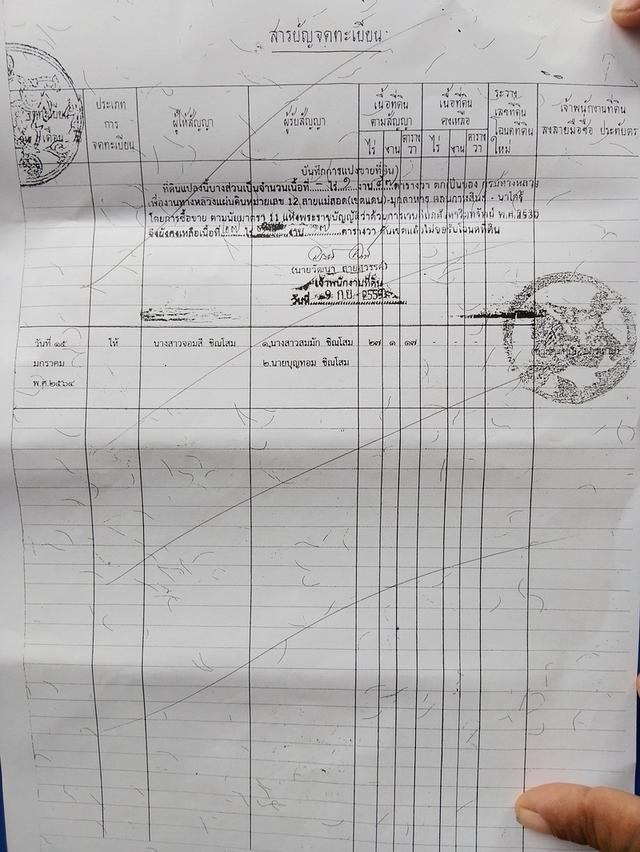 สารบัญจดทะเบียน
ประเภท
การ
จดทะเบียน
ผู้ให้สัญญา
ผู้รับสัญญา
เนื้อที่ดิน
ตามสัญญา
ไร่ งาน ตาราง
วา
เนื้อที่ดิน
คงเหลือ
ไร่ งาน ตาราง
วา
ระวาง
เลขที่ดิน
โฉนดที่ดิน
ใหม่
เจ้าพนักงานที่ดิน
ลงลายมือชื่อ ประทับตรา
บันทึกการแบ่งขายที่ดิน
ที่ดินแปลงนี้บางส่วนเป็นจำนวนเนื้อที่ ไร่ งาน ตารางวา ตกเป็นของ กรมทางหลวง
เพื่องานทางหลวงแผ่นดินหมายเลข 12 สายแม่สอด(เขตแดน)-มุกดาหาร นาไคร้
โดยการซื้อขาย ตามนัยมาตรา 11 แห่งพระราชบัญญัติว่าด้วยการเวนคืนอสังหาริมทรัพย์ พ.ศ.2530
จึงยังคงเหลือเนื้อที่ ไร่ งาน ตารางวา
เจ้าพนักงานที่ดิน
วันที่ ก.ย.
วันที่ ๑๕ ให้ นางสาวจอมสี ชิณโสม ๑.นางสาวสมมัก ชิณโสม ๒๗ ๑ ๑๗ - - -
มกราคม ๒.นายบุญทอม ชิณโสม
พ.ศ.๒๕๖๔